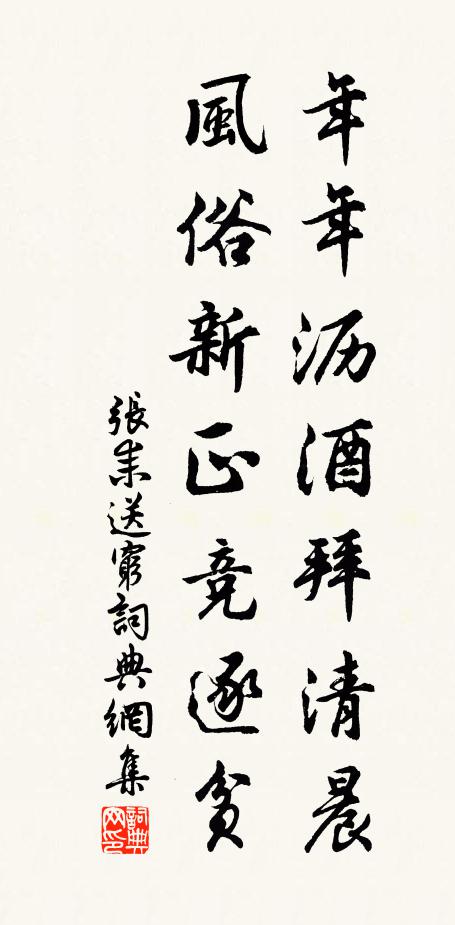 年年沥酒拜清晨
風俗新正竞逐贫
張耒送窮詞典網集
詞典网印